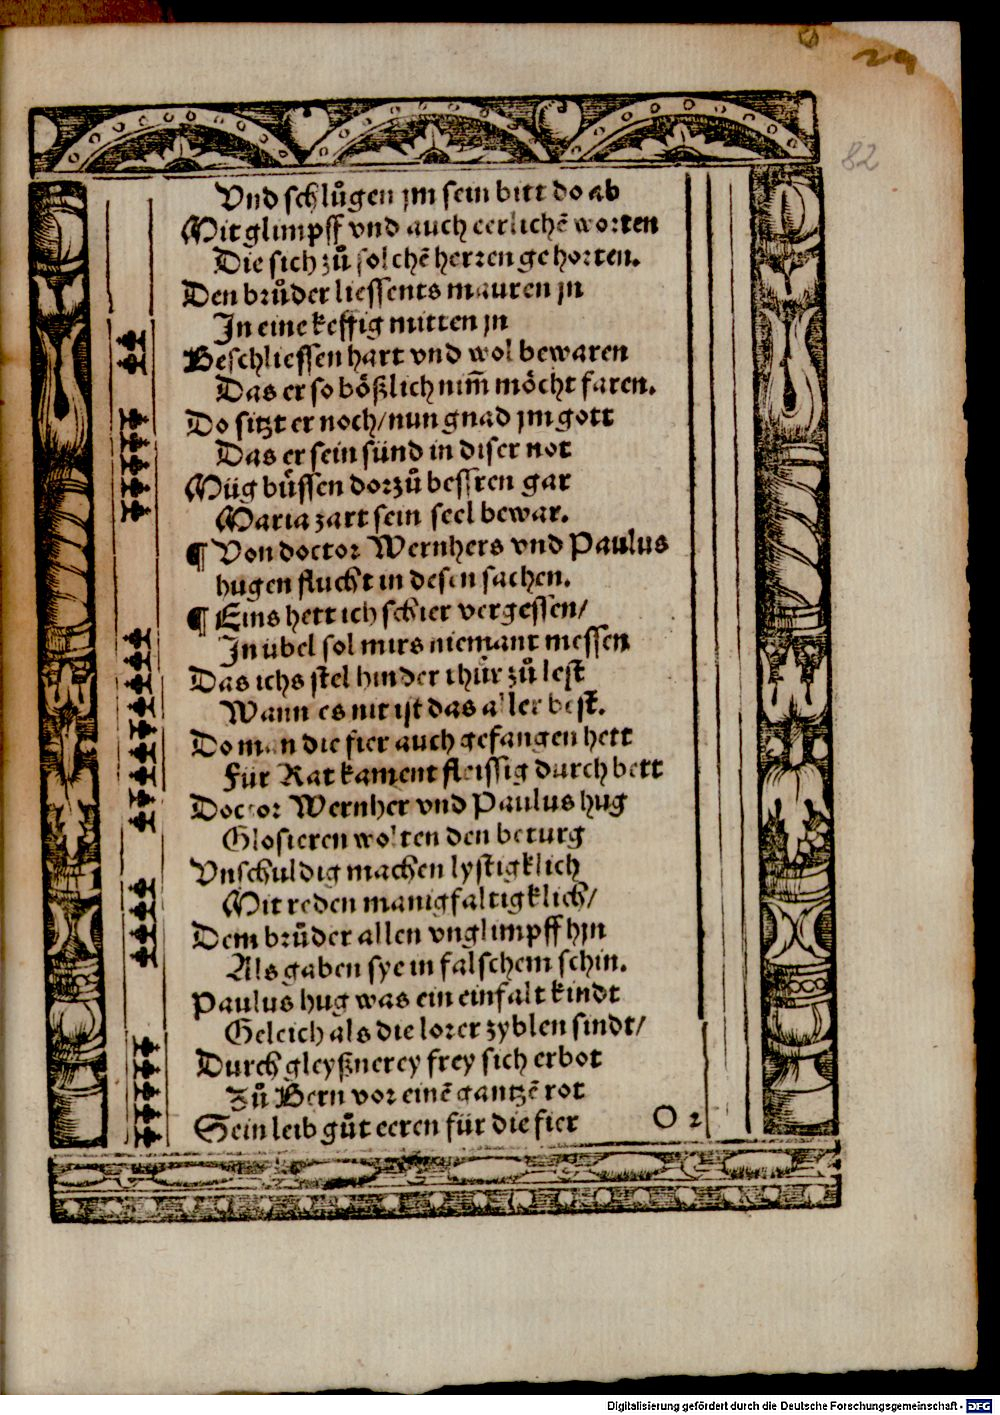 29
82
Vnd schluͦgen jm sein bitt do ab
Mit glimpff vnd auch eerlichē worten
Die sich zuͦ solchē herren gehorten.
Den bruͦder liessents mauren jn
In eine keffig mitten jn
Beschliessen hart vnd wol bewaren
Das er so boͤßlich nim̄ moͤcht faren.
Do sitzt er noch/nun gnad jm gott
Das er sein sünd in diser not
Müg buͤssen dorzuͦ bessren gar
Maria zart sein seel bewar.
¶ Von doctor Wernhers vnd Paulus
hugen flucht in desen sachen.
¶ Eins hett ich schier vergessen/
In übel sol mirs niemant messen
Das ichs stel hinder thuͤr zuͦ lest
Wann es nit ist das aller best.
Do man die fier auch gefangen hett
Für Rat kament fleissig durch bett
Doctor Wernher vnd Paulus hug
Glosieren wolten den beturg
Vnschuldig machen lystigklich
Mit reden manigfaltigklich/
Dem bruͦder allen vnglimpff hjn
Als gaben sye in falschem schin.
Paulus hug was ein einfalt kindt
Geleich als die lorer zyblen sindt/
Durch gleyßnerey frey sich erbot
Zuͦ Bern vor einē gantzē rot
Sein leib guͦt eeren für die fier
O 2
Digitalisierung gefördert durch die Deutsche Forschungsgemeinschaft - DFG